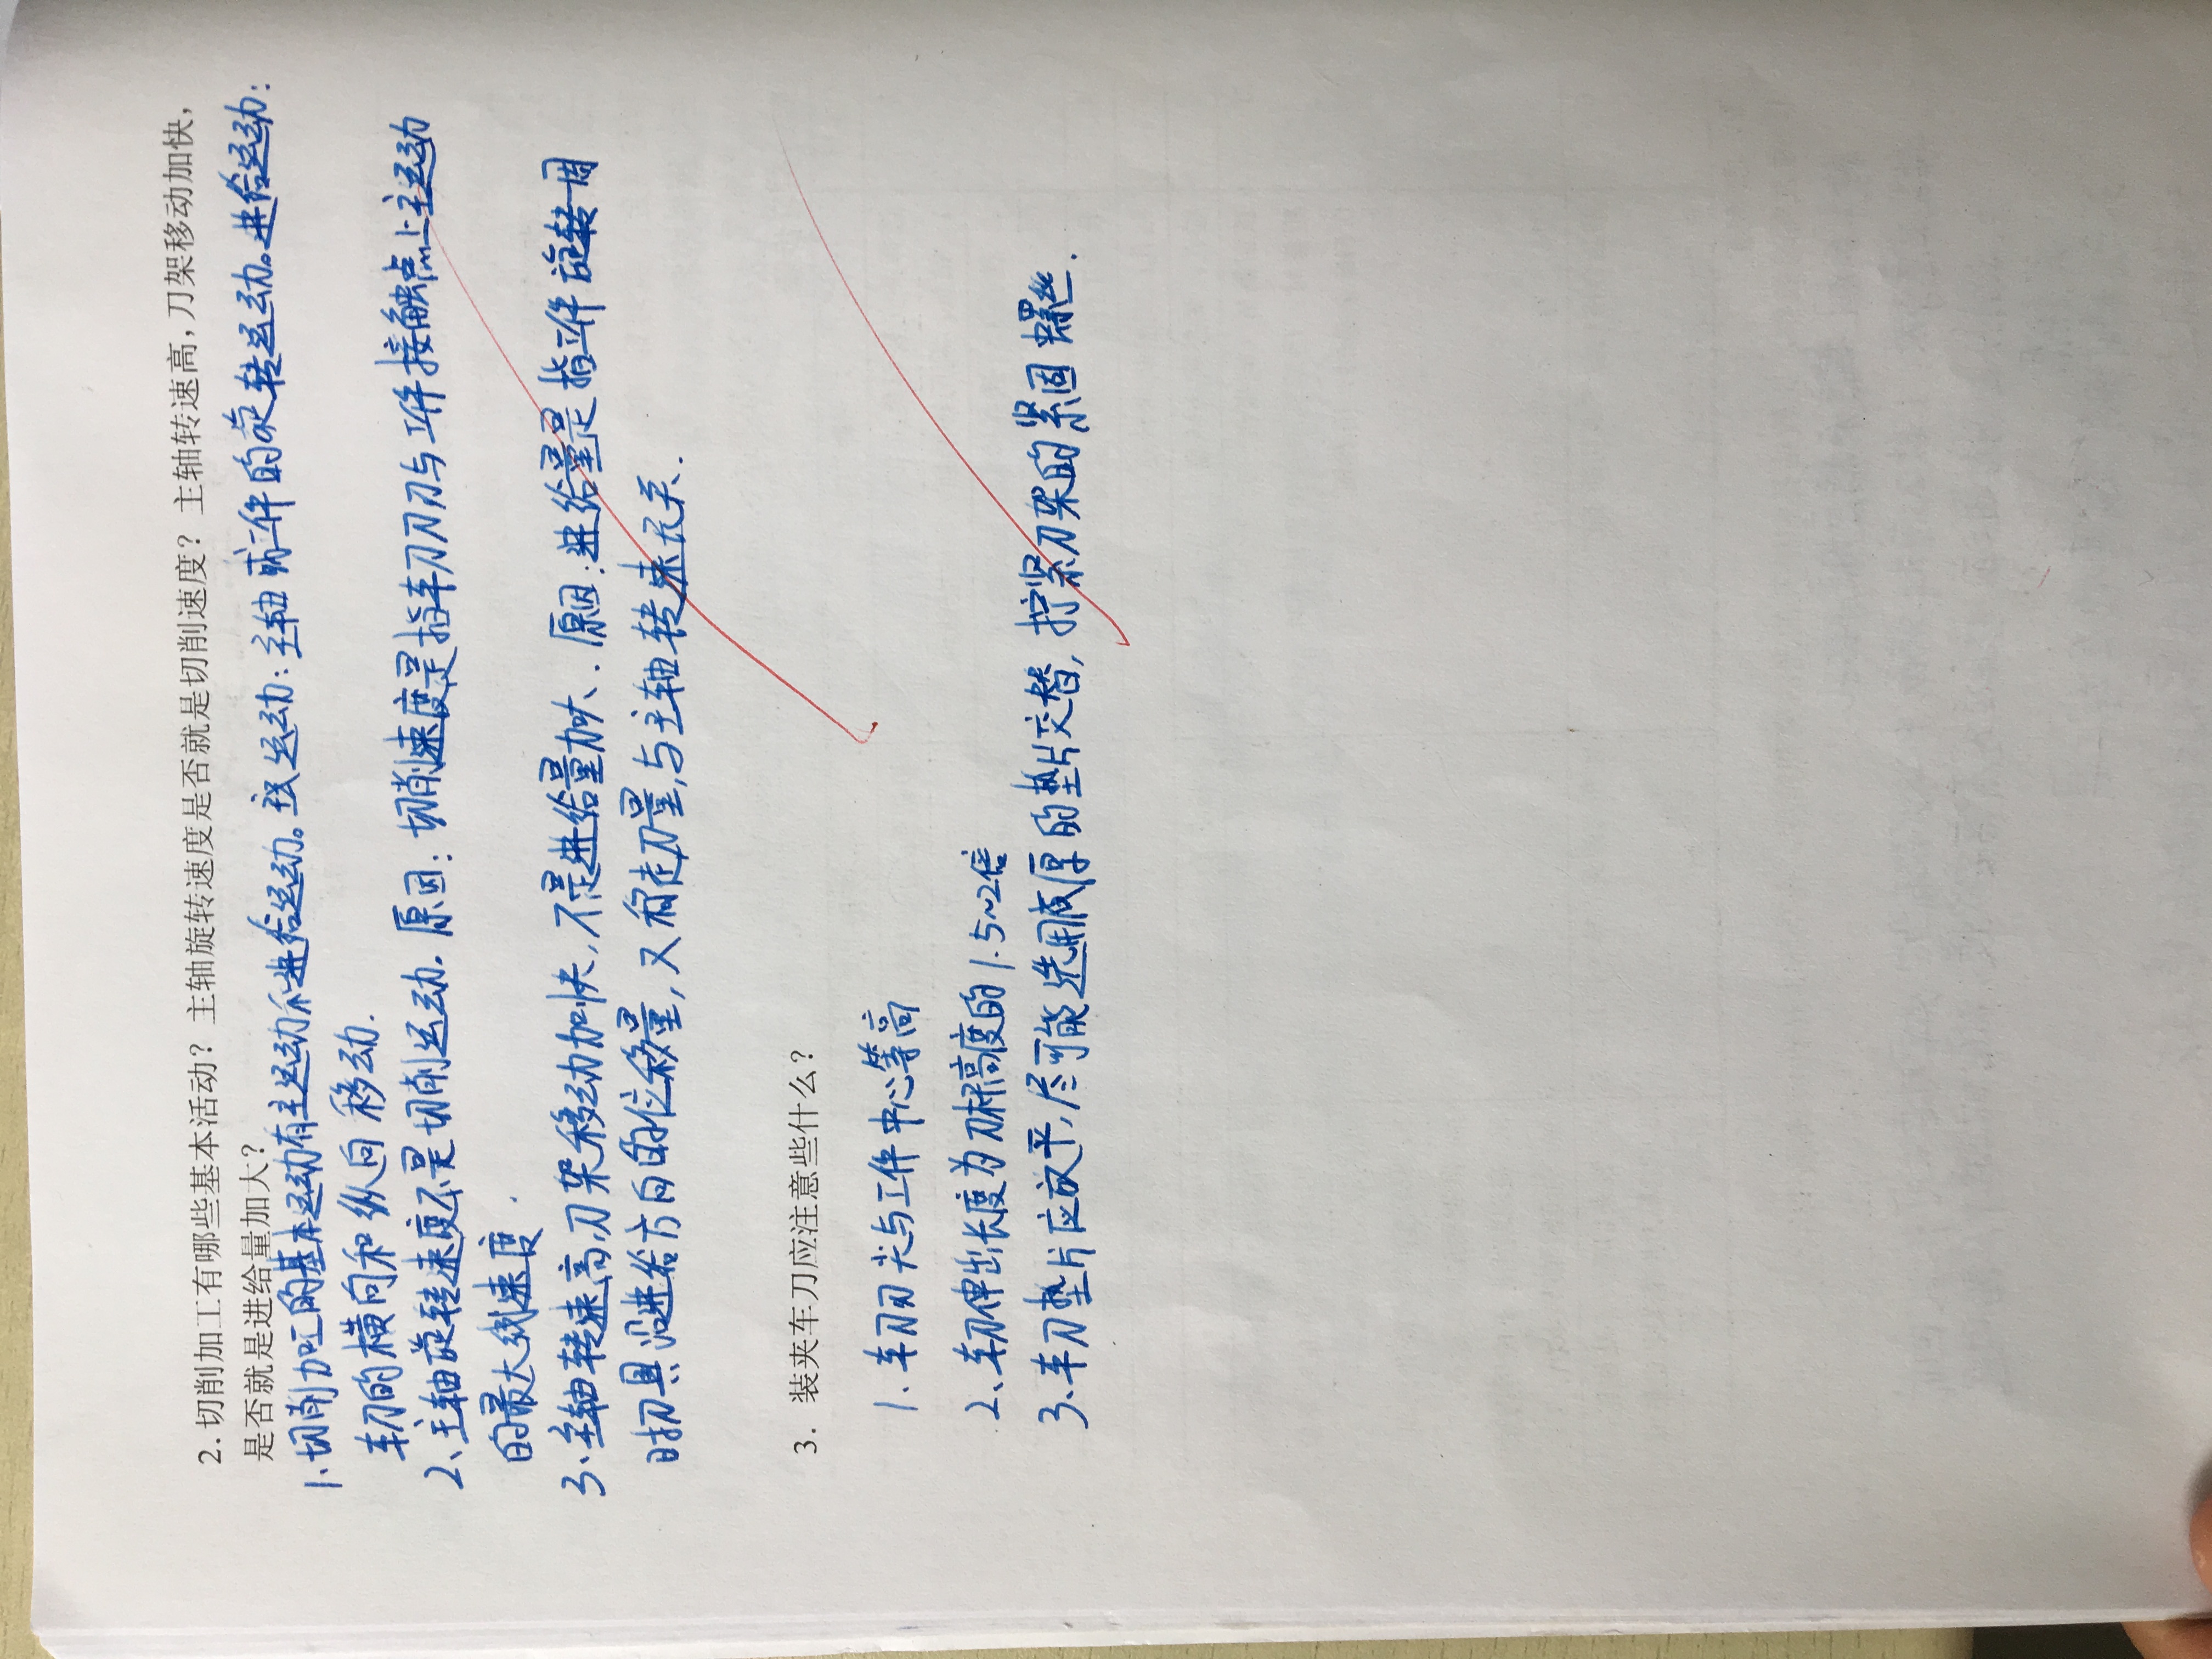 2.切削加工有哪些基本活动？主轴旋转速度是否就是切削速度？主轴转速高，刀架移动加快，
是否就是进给量加大？
1、切削加工的基本运动有主运动和进给运动。主运动：主轴或工件的旋转运动。进给运动：
车刀的横向和纵向移动.
2、主轴旋转速度不是切削运动.原因：切削速度是指车刀刀刃与工件接触点上主运动
的最大线速度.
3、主轴转速高,刀架移动加快,不是进给量加大.原因:进给量是指工件旋转一周
时刀具沿进给方向的位移量,又称走刀量,与主轴转速无关.
3. 装夹车刀应注意些什么？
1、车刀刃尖与工件中心等高
2、车刀伸出长度为刀杆高度的1.5~2倍
3、车刀垫片应放平,尽可能选用 厚的垫片交替,拧紧刀架的紧固螺丝.